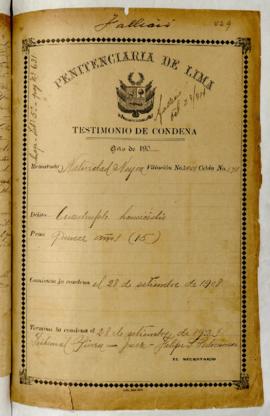 Falleció 429
PENITENCIARIA DE LIMA
Falleció
TESTIMONIO DE CONDENA
Año de 190
Rematado Natividad Filiación No. Celda No.
Delito Cuadruple homicidio
Pena Quince años (15)
Comienza la condena el 28 de setiembre de 1908
Termina la condena el 28 de setiembre de
Tribunal Piura — Juez — Felipe
EL SECRETARIO